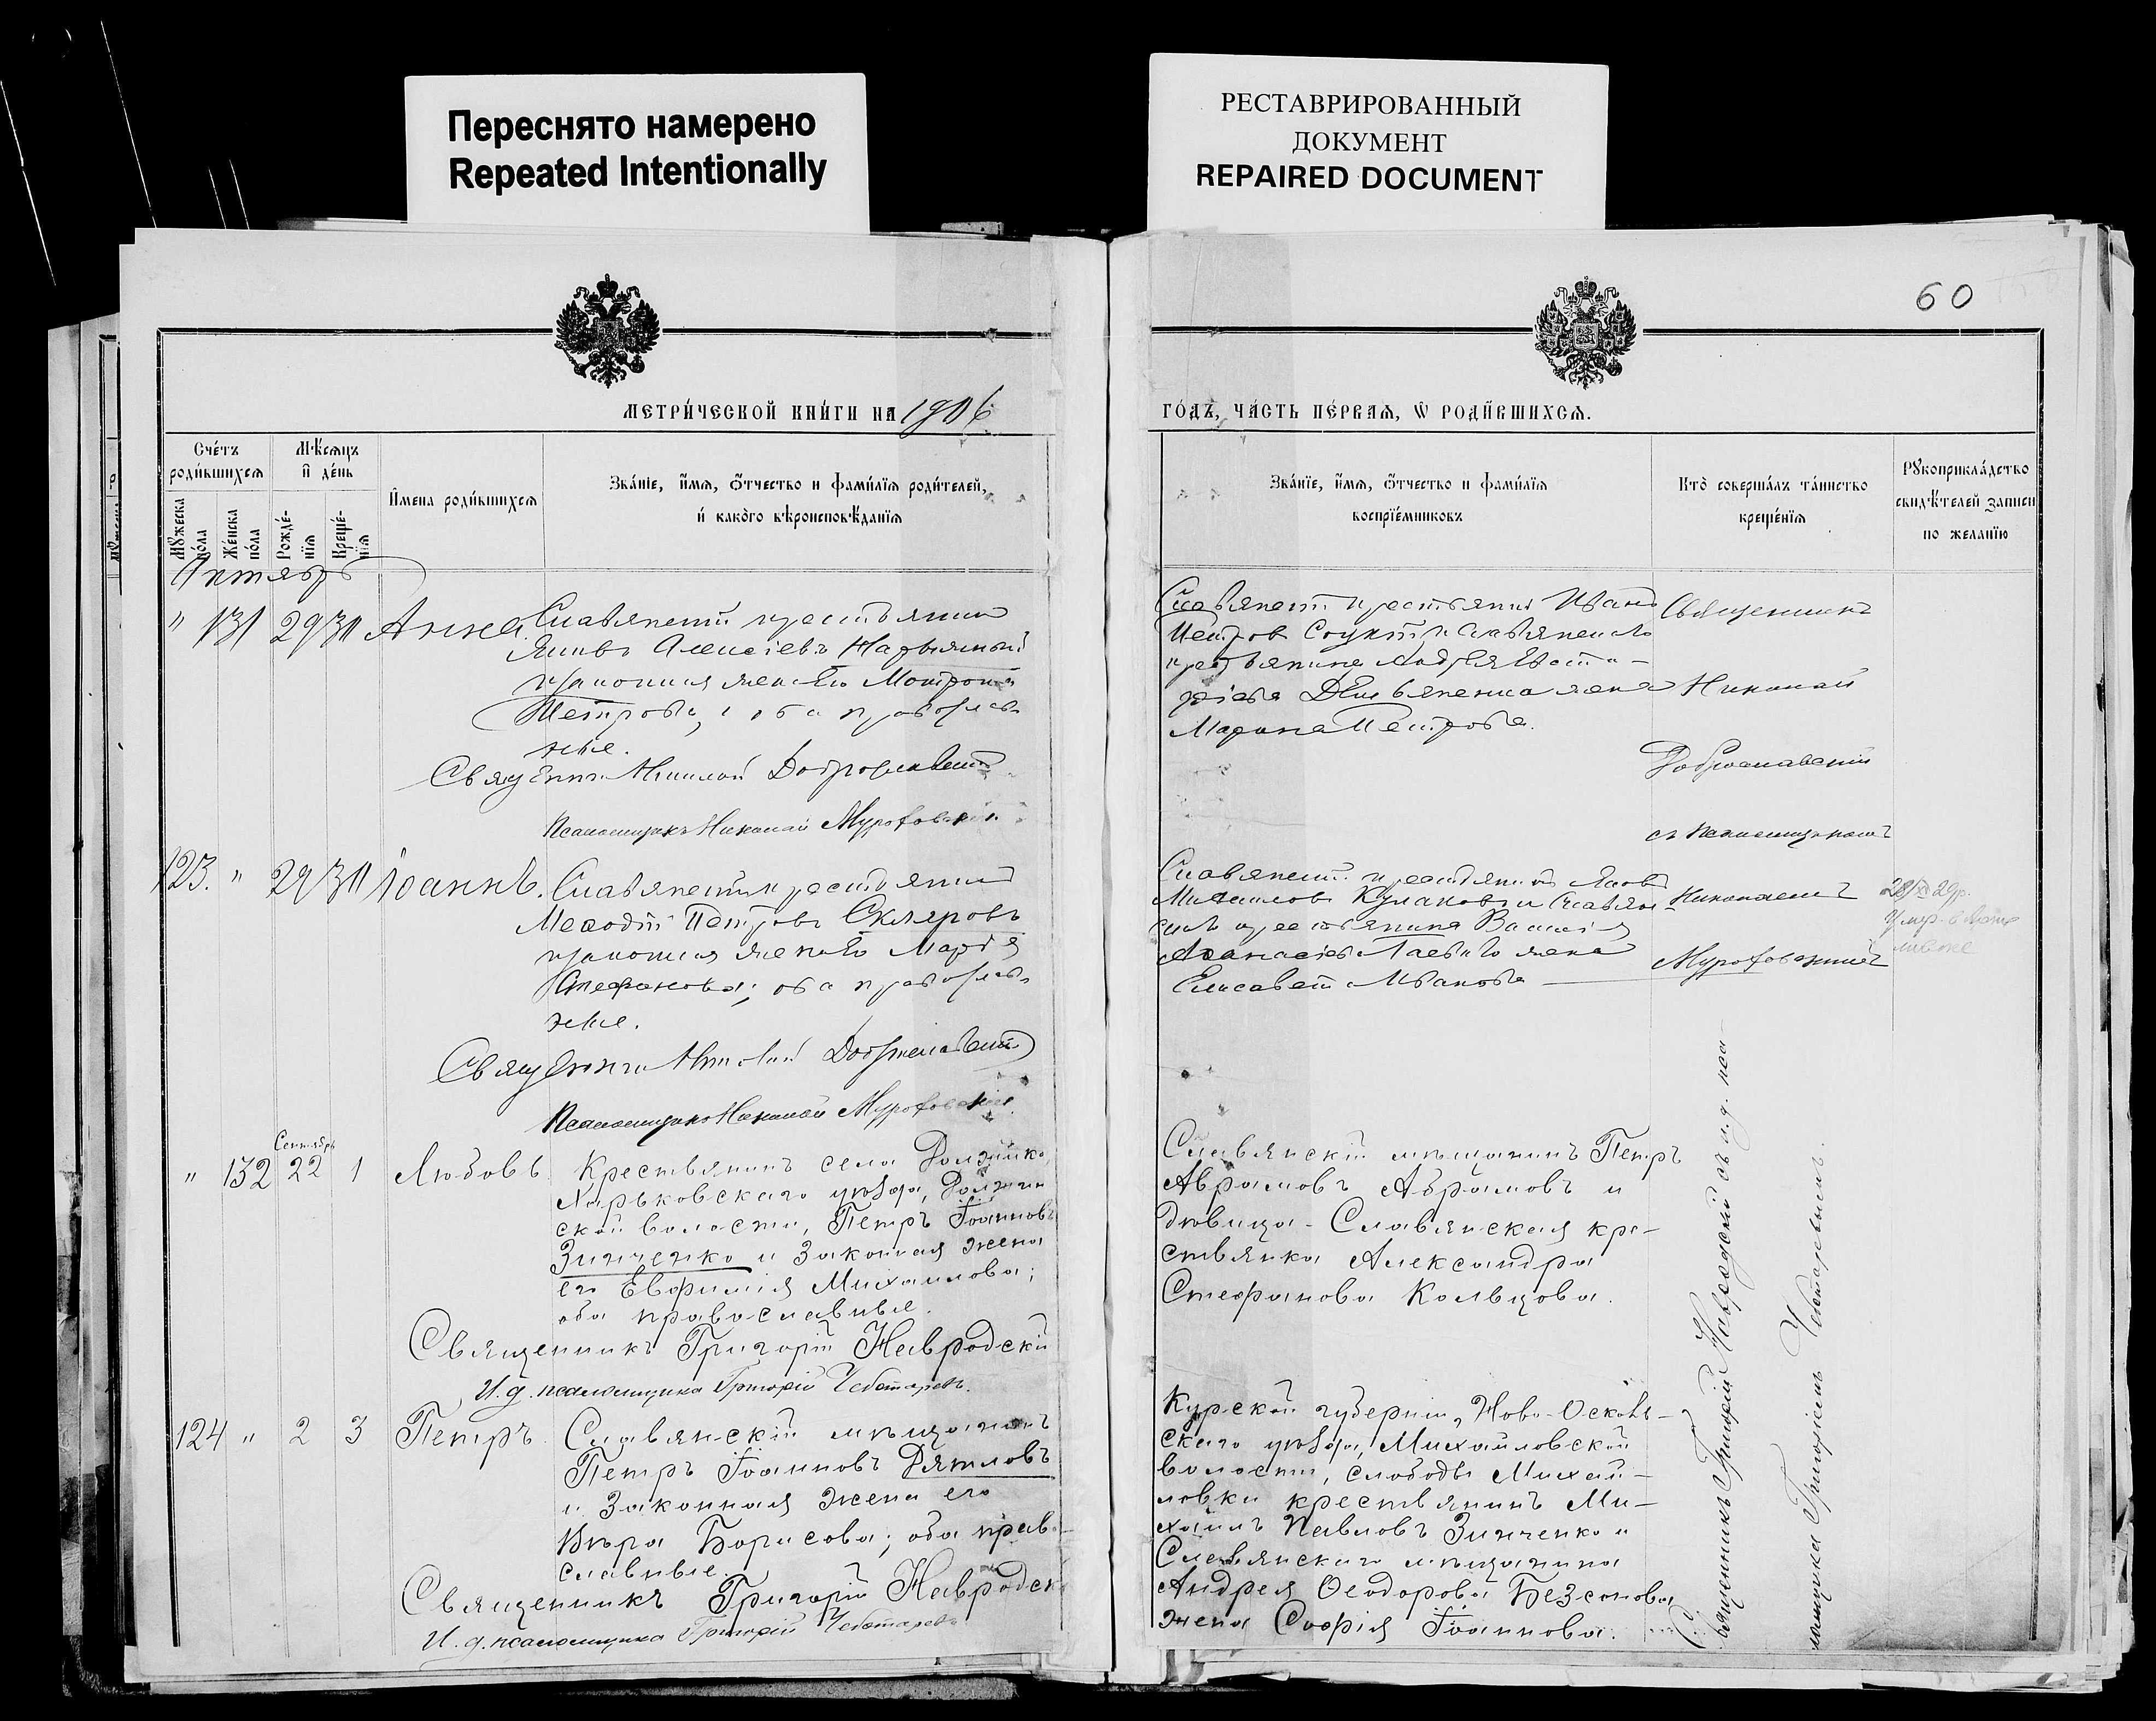 Переснято намерено
Repeated Intentionally
РЕСТАВРИРОВАННЫЙ
ДОКУМЕНТ
REPAIRED DOCUMENT
60
МЕТРИ́ЧЕСКОЙ КНИ́ГИ НА 1906
ГО́ДЪ, ЧА́СТЬ ПЕ́РВАЯ, Ѿ РОДИ́ВШИХСЯ.
Счётъ
роди́вшихся
Мѣсяцъ
и де́нь
Мꙋжеска
по́ла
Же́нска
по́ла
Рожде́-
нїя
Креще́-
нїя
Имена роди́вшихся
Зва́нїе, и́мя, ѻ́тчество и фами́лїя роди́телей,
и́ како́го вѣроисповѣ́данїя
Зва́нїе, и́мя, ѻ́тчество и фами́лїя
воспрїе́мниковъ
Кто̀ соверша́лъ та́инство
креще́нїя
Рꙋкоприкла́дство
свидѣ́телей записи
по жела́нїю
Октябрь
" 131 29 30 Анна
Славянскій крестьянинъ
Яковъ Алексіевъ
законная жена его Мотрона
Петрова, оба православ-
ные.
Священникъ Николай Доброславскій
Псаломщикъ Николай
Славянскій крестьянинъ Иванъ
Петровъ и Славянскаго
крестьянина Андрея
жена
Марина Петрова.
Священникъ
Николай
Доброславскій
съ псаломщикомъ
Николаемъ
123. " 29 30 Іоаннъ.
Славянскій крестьянинъ
Меѳодій Петровъ Скляровъ
законная жена его Марія
Стефанова; оба православ-
ные.
Священникъ Николай Доброславскій
Псаломщикъ Николай
Славянскій крестьянинъ Яковъ
Михаиловъ Кулаковъ и Славян-
скаго крестьянина Василія
Аѳанасіева жена
Елисавета Иванова
Сентябрь
" 132 22 1 Любовь
Крестьянинъ села
Харьковскаго уѣзда,
ской волости, Петръ Іоанновъ
Зинченко и законная жена
его Евфимія Михаилова;
оба православные.
Священникъ Григорій Навродскій
И. д. псаломщика Григорій Чеботаревъ.
Славянскій мѣщанинъ Петръ
Аврамовъ Абрамовъ и
дѣвица - Славянская кре-
стьянка Александра
Стефанова Кольцова.
124 " 2 3 Петръ
Славянскій мѣщанинъ
Петръ Іоанновъ Дятловъ
и законная жена его
Вѣра Борисова; оба право-
славные.
Священникъ Григорій Навродскій
И. д. псаломщика Григорій Чеботаревъ
Курской губерніи, Ново-Осколь-
скаго уѣзда, Михайловской
волости, слободы Михай-
ловки крестьянинъ Ми-
хаилъ Павловъ Зинченко и
Славянскаго мѣщанина
Андрея Ѳеодорова Безсонова
жена Софія Іоаннова.
Священникъ Григорій Навродскій съ и. д. пса-
ломщика Григоріемъ Чеботаревымъ.